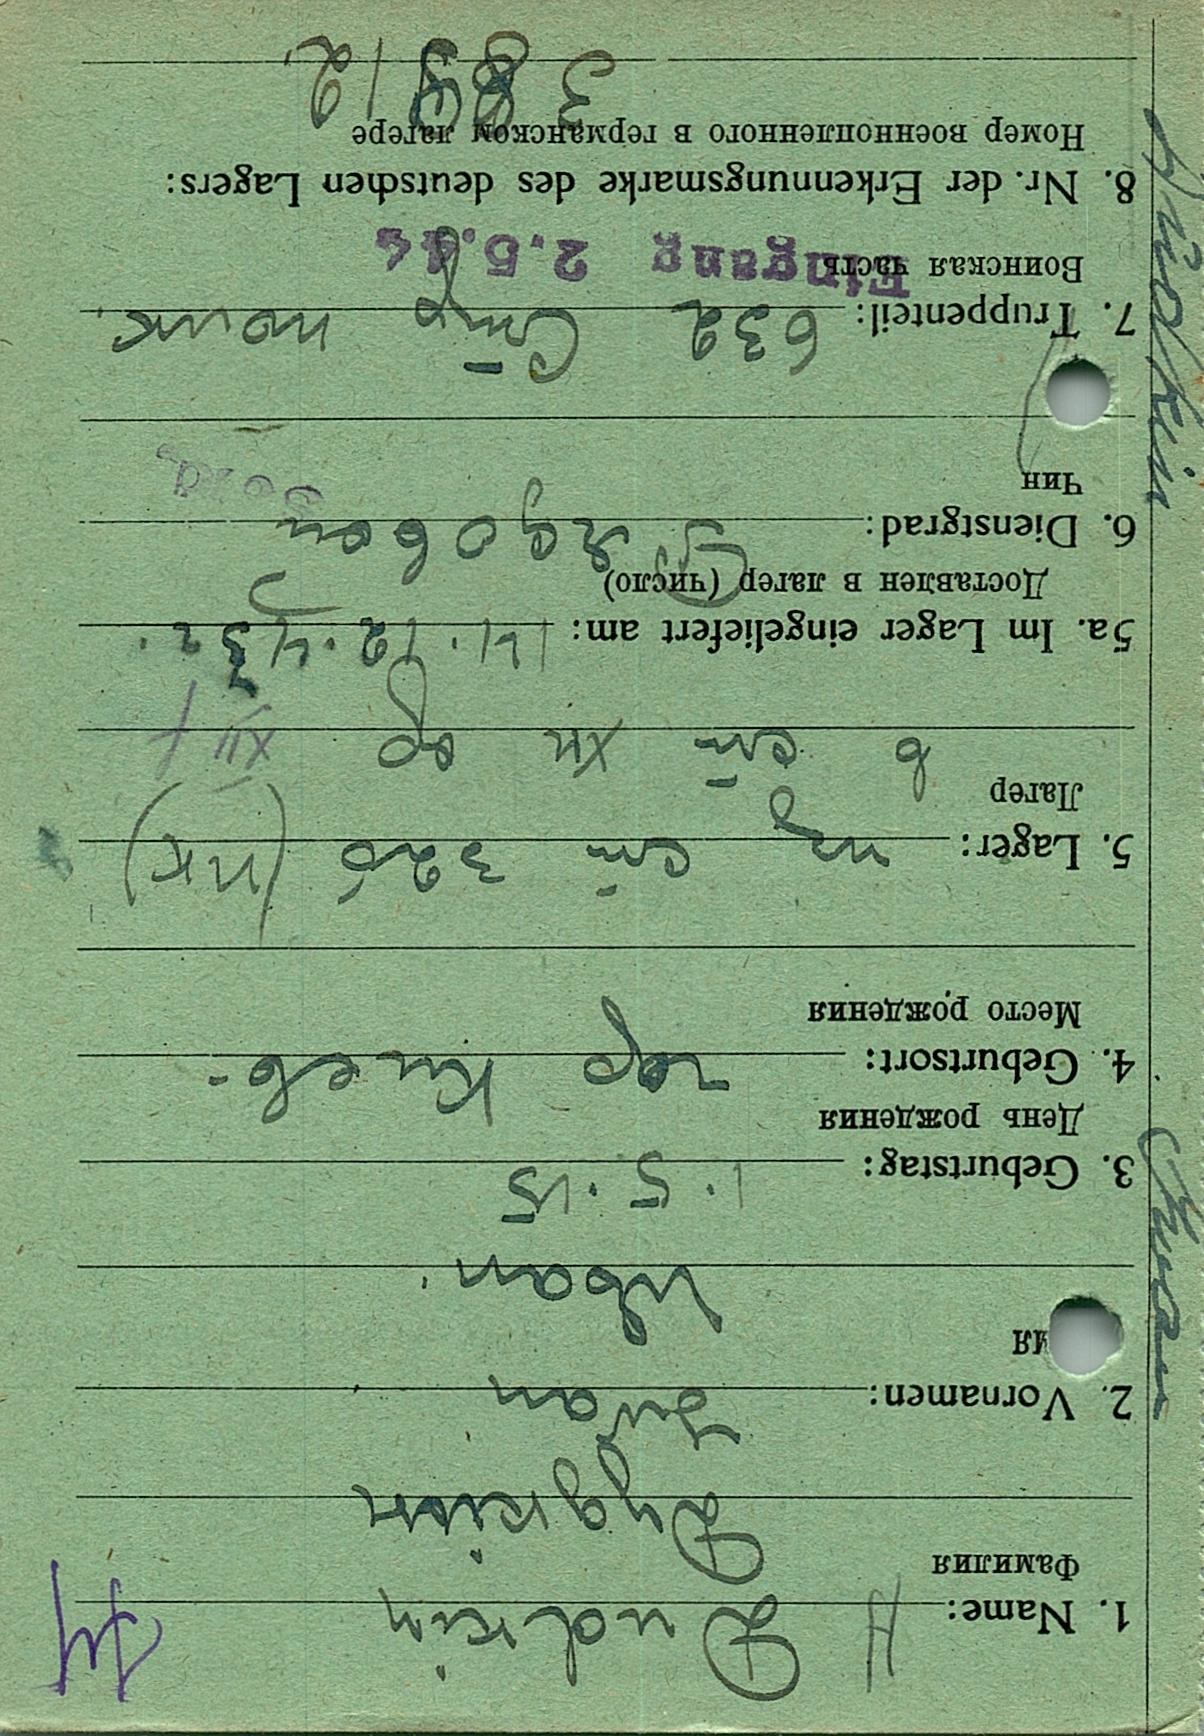 1. Name: Dudkin
Фамилия
Дудкин
2. Vornamen: Iwan
Иван
3. Geburtstag: 1.5.15
День рождения
4. Geburtsort: гор Киев
Место рождения
5. Lager: из ст 326 (VIK)
Лагер
в ст XII XII F
5a. Im Lager eingeliefert am: 14.12.43 г.
Доставлен в лагер (число)
6. Dienstgrad: Рядовой
Чин
Sold.
7. Truppenteil: 632 Стр полк.
Воинская часть
Eingang 2.5.44
8. Nr. der Erkennungsmarke des deutschen Lagers:
Номер военнопленного в германском лагере
Dudkin Iwan